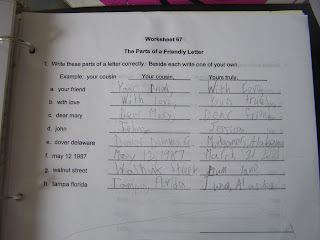 Worksheet 67
The Parts of a Friendly Letter
1. Write these parts of a letter correctly. Beside each write one of your own.
Example: your cousin Your cousin, Yours truly,
a. your friend Your friend, With love
b. with love With love, Yours truly,
c. dear mary Dear Mary, Dear
d. john John, Jessica
e. dover delaware
f. may 12 1987 May 12, 1987 March 21,
g. walnut street Walnut Street Lane
h. tampa florida Tampa, Florida Alaska